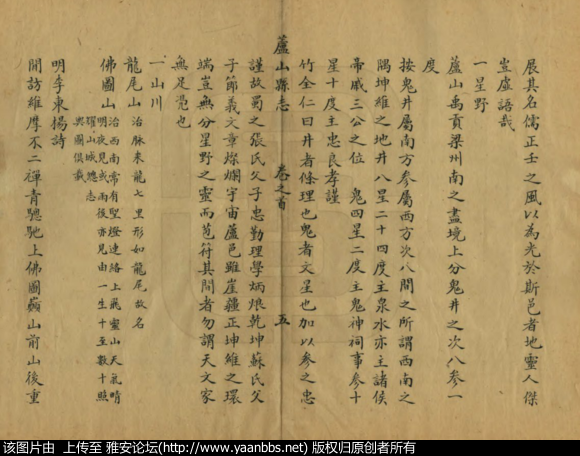 展其名儒正壬之風以為光於斯邑者地靈人傑
豈虛語哉
一星野
蘆山禹貢梁州南之盡境上分鬼井之次入參一
度
按鬼井屬南方參屬西方次八間之所謂西南之
隅坤維之地井八星二十四度主泉水亦主諸侯
帝戚三公之位 鬼四星二度主鬼神祠事參十
星十度主忠良孝謹
竹全仁曰井者條理也鬼者文星也加以參之忠
蘆山縣志 卷之首 五
謹故蜀之張氏父子忠勤理學炳烺乾坤蘇氏父
子節義文章燦爛宇宙蘆邑雖崖疆正坤維之環
端豈無分星野之靈而苞符其間者勿謂天文家
無足憑也
一山川
龍尾山 治脉來龍七里形如龍尾故名
佛圖山 治西南常有聖燈連絡上飛靈山天氣晴
明夜見或雨後亦見由一生十至數十照
耀山城總志
輿圖俱載
明李東揚詩
開訪維摩不二禪青驄馳上佛圖巔山前山後重
该图片由 上传至 雅安论坛(http://www.yaanbbs.net) 版权归原创者所有